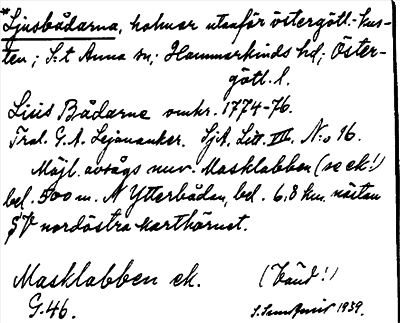 *Ljusbådarna, holmar utanför östergötl. kus-
ten; S:t Anna sn; Hammarkinds hd; Öster-
götl. l.
Lisis Bådarne omkr. 1774-76.
Tral. G. A. Lejonanker. SjA, Litt. III, N:o 16.
Möjl. avsågs nuv. Masklabben (se ek!)
bel. 500 m. N Ytterbåden, bel. 6,8 km. nästan
SV nordöstra karthörnet.
Masklabben ek. (Vänd!)
G.46. 1939.